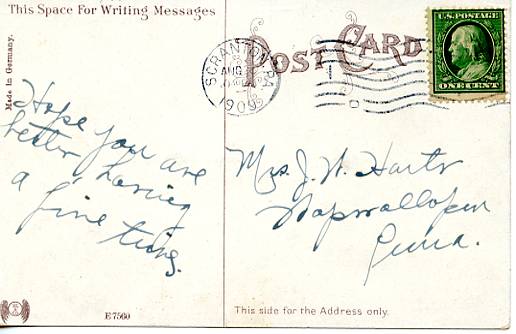 This Space For Writing Messages
POST CARD
U.S. POSTAGE
ONE CENT
SCRANTON, PA
AUG
1909
Made in Germany.
Hope you are
better, having
a fine time.
Mrs. J. W. Harter
Wapwallopen
Penna.
E 7560
This side for the Address only.